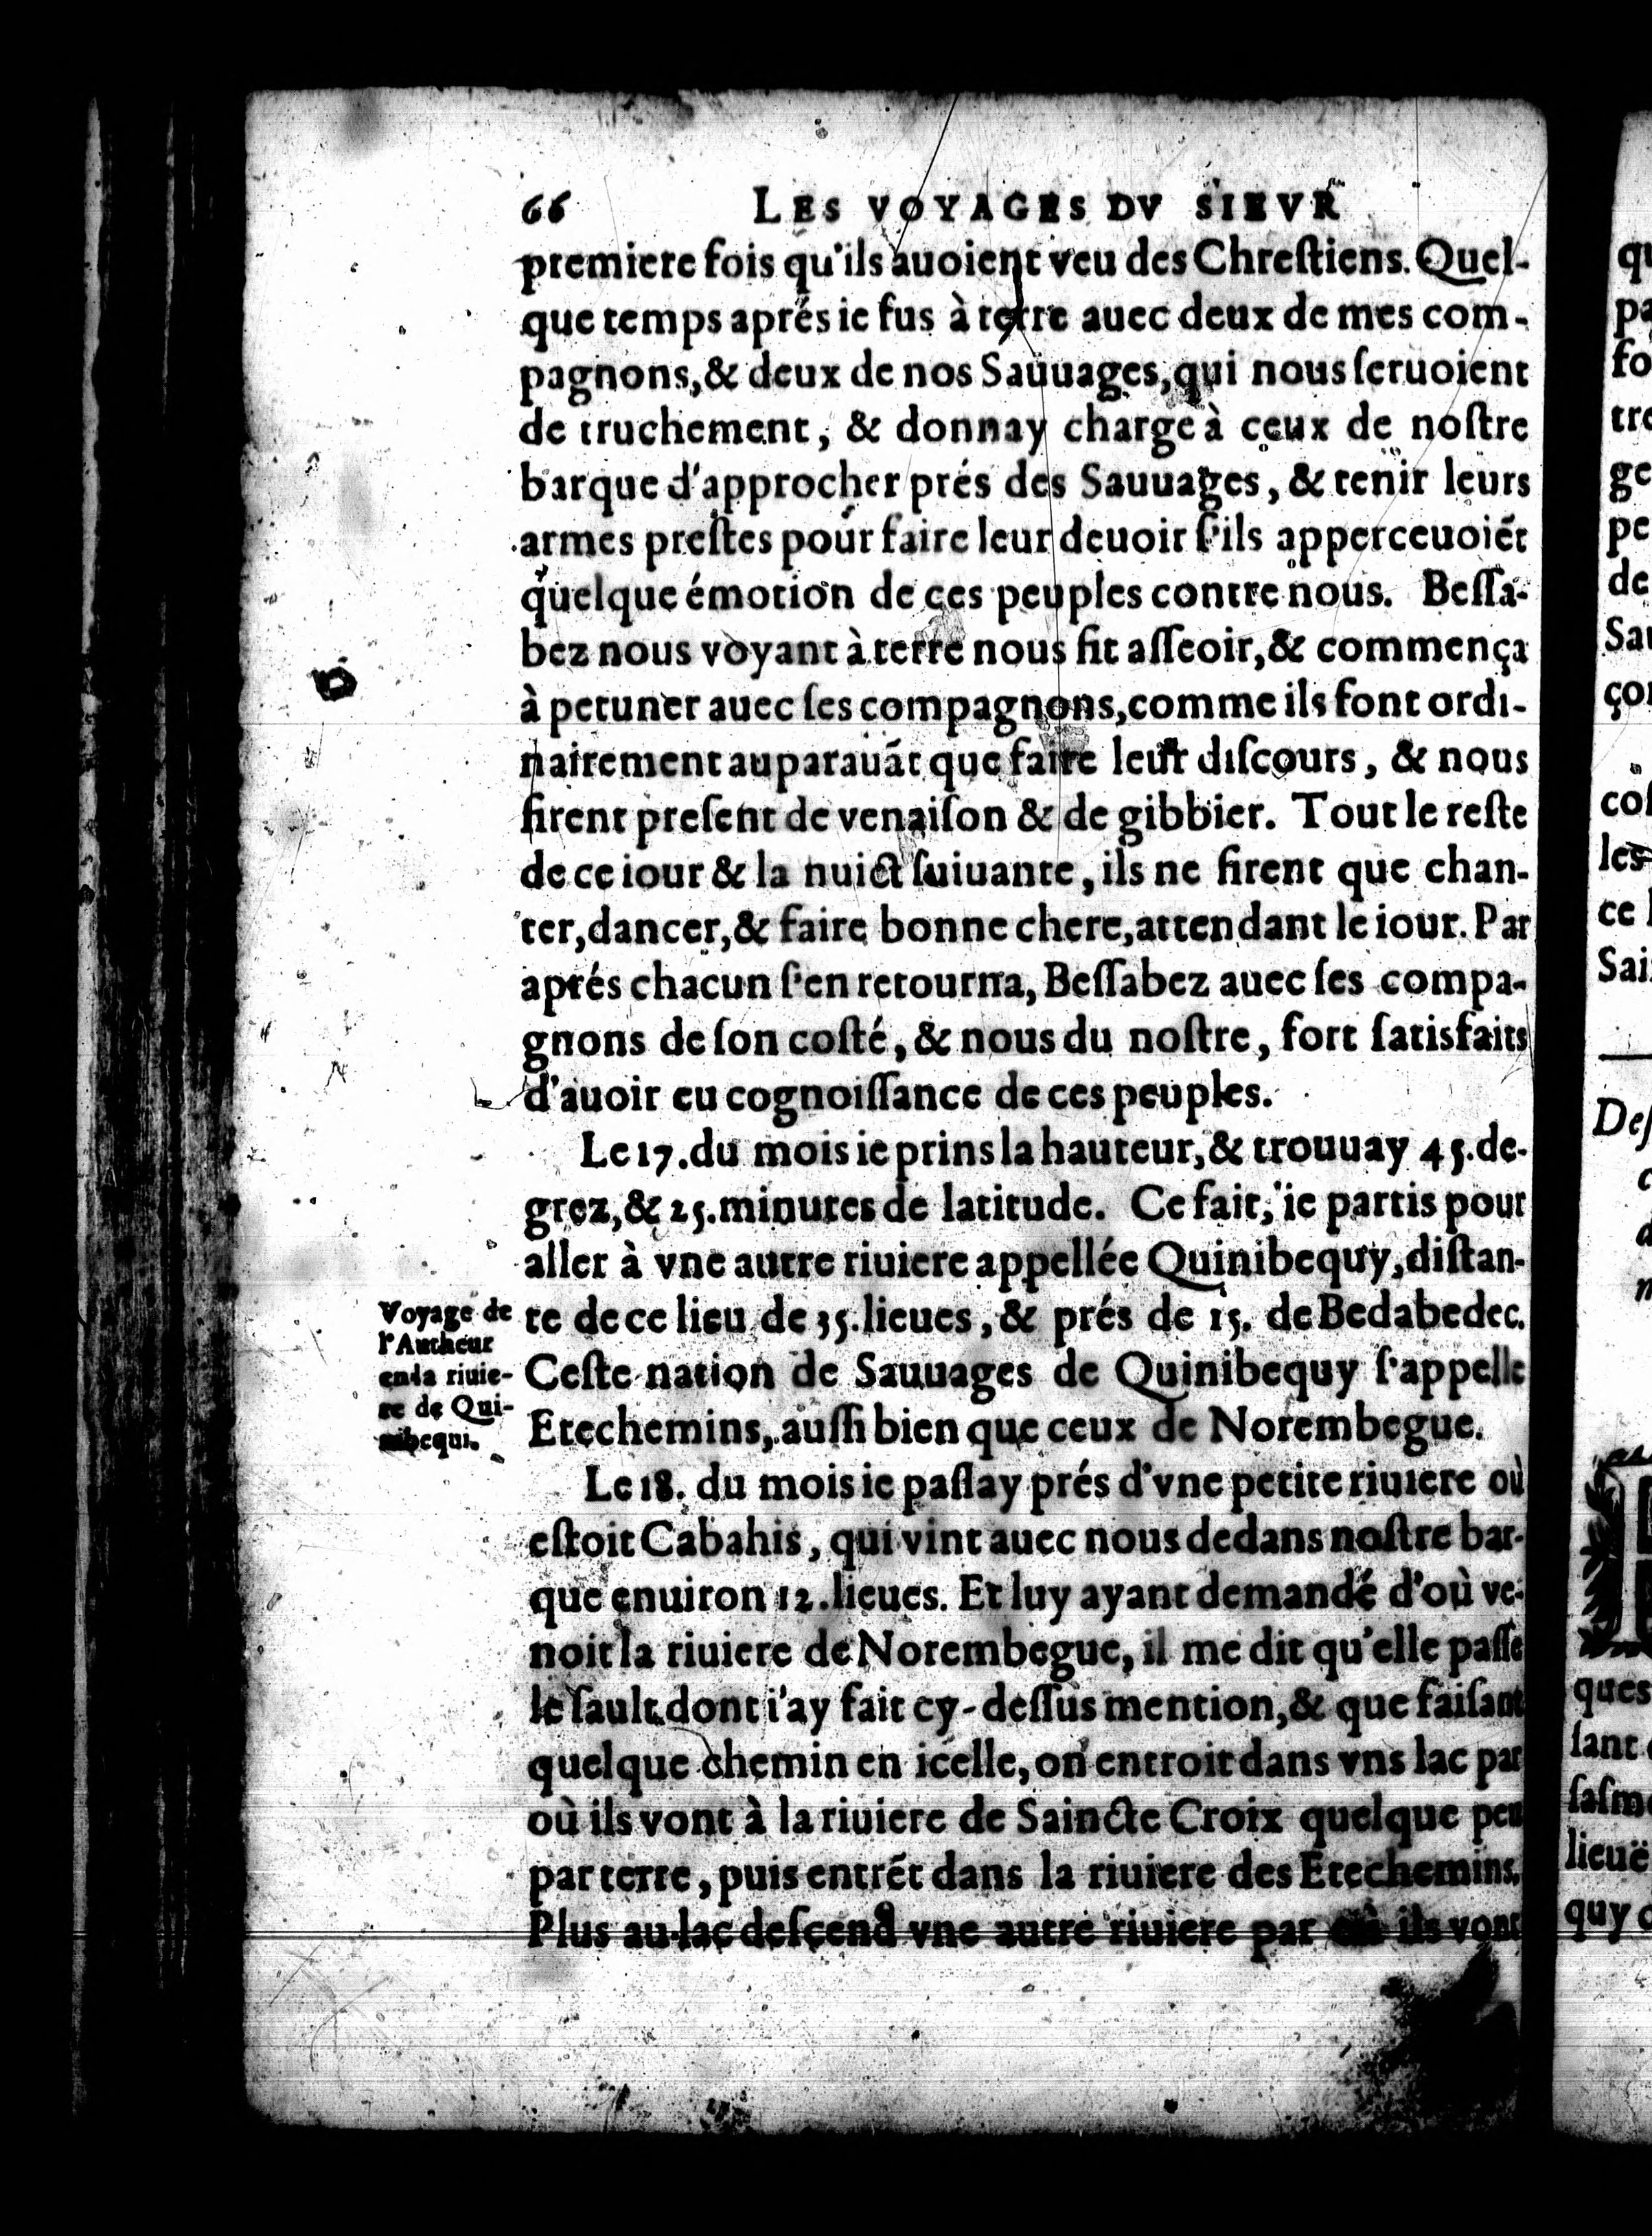 66 LES VOYAGES DV SIEVR
premiere fois qu'ils auoient veu des Chreſtiens. Quel-
que temps aprés ie fus à terre auec deux de mes com-
pagnons, & deux de nos Sauuages, qui nous ſeruoient
de truchement, & donnay charge à ceux de noſtre
barque d'approcher prés des Sauuages, & tenir leurs
armes preſtes pour faire leur deuoir ſ'ils apperceuoiẽt
quelque émotion de ces peuples contre nous. Beſſa-
bez nous voyant à terre nous fit aſſeoir, & commença
à petuner auec ſes compagnons, comme ils font ordi-
nairement auparauãt que faire leur diſcours, & nous
firent preſent de venaiſon & de gibbier. Tout le reſte
de ce iour & la nuict ſuiuante, ils ne firent que chan-
ter, dancer, & faire bonne chere, attendant le iour. Par
aprés chacun ſ'en retourna, Beſſabez auec ſes compa-
gnons de ſon coſté, & nous du noſtre, fort ſatisfaits
d'auoir eu cognoiſſance de ces peuples.
Le 17. du mois ie prins la hauteur, & trouuay 45. de-
grez, & 25. minutes de latitude. Ce fait, ie partis pour
aller à vne autre riuiere appellée Quinibequy, diſtan-
te de ce lieu de 35. lieues, & prés de 15. de Bedabedec.
Ceſte nation de Sauuages de Quinibequy ſ'appelle
Etechemins, auſſi bien que ceux de Norembegue.
Voyage de
l'Autheur
en la riuie-
re de Qui-
nibequi.
Le 18. du mois ie paſſay prés d'vne petite riuiere où
eſtoit Cabahis, qui vint auec nous dedans noſtre bar-
que enuiron 12. lieues. Et luy ayant demandé d'où ve-
noit la riuiere de Norembegue, il me dit qu'elle paſſe
le ſault dont i'ay fait cy-deſſus mention, & que faiſant
quelque chemin en icelle, on entroit dans vns lac par
où ils vont à la riuiere de Saincte Croix quelque peu
par terre, puis entrẽt dans la riuiere des Etechemins.
Plus au lac deſcend vne autre riuiere par où ils vont